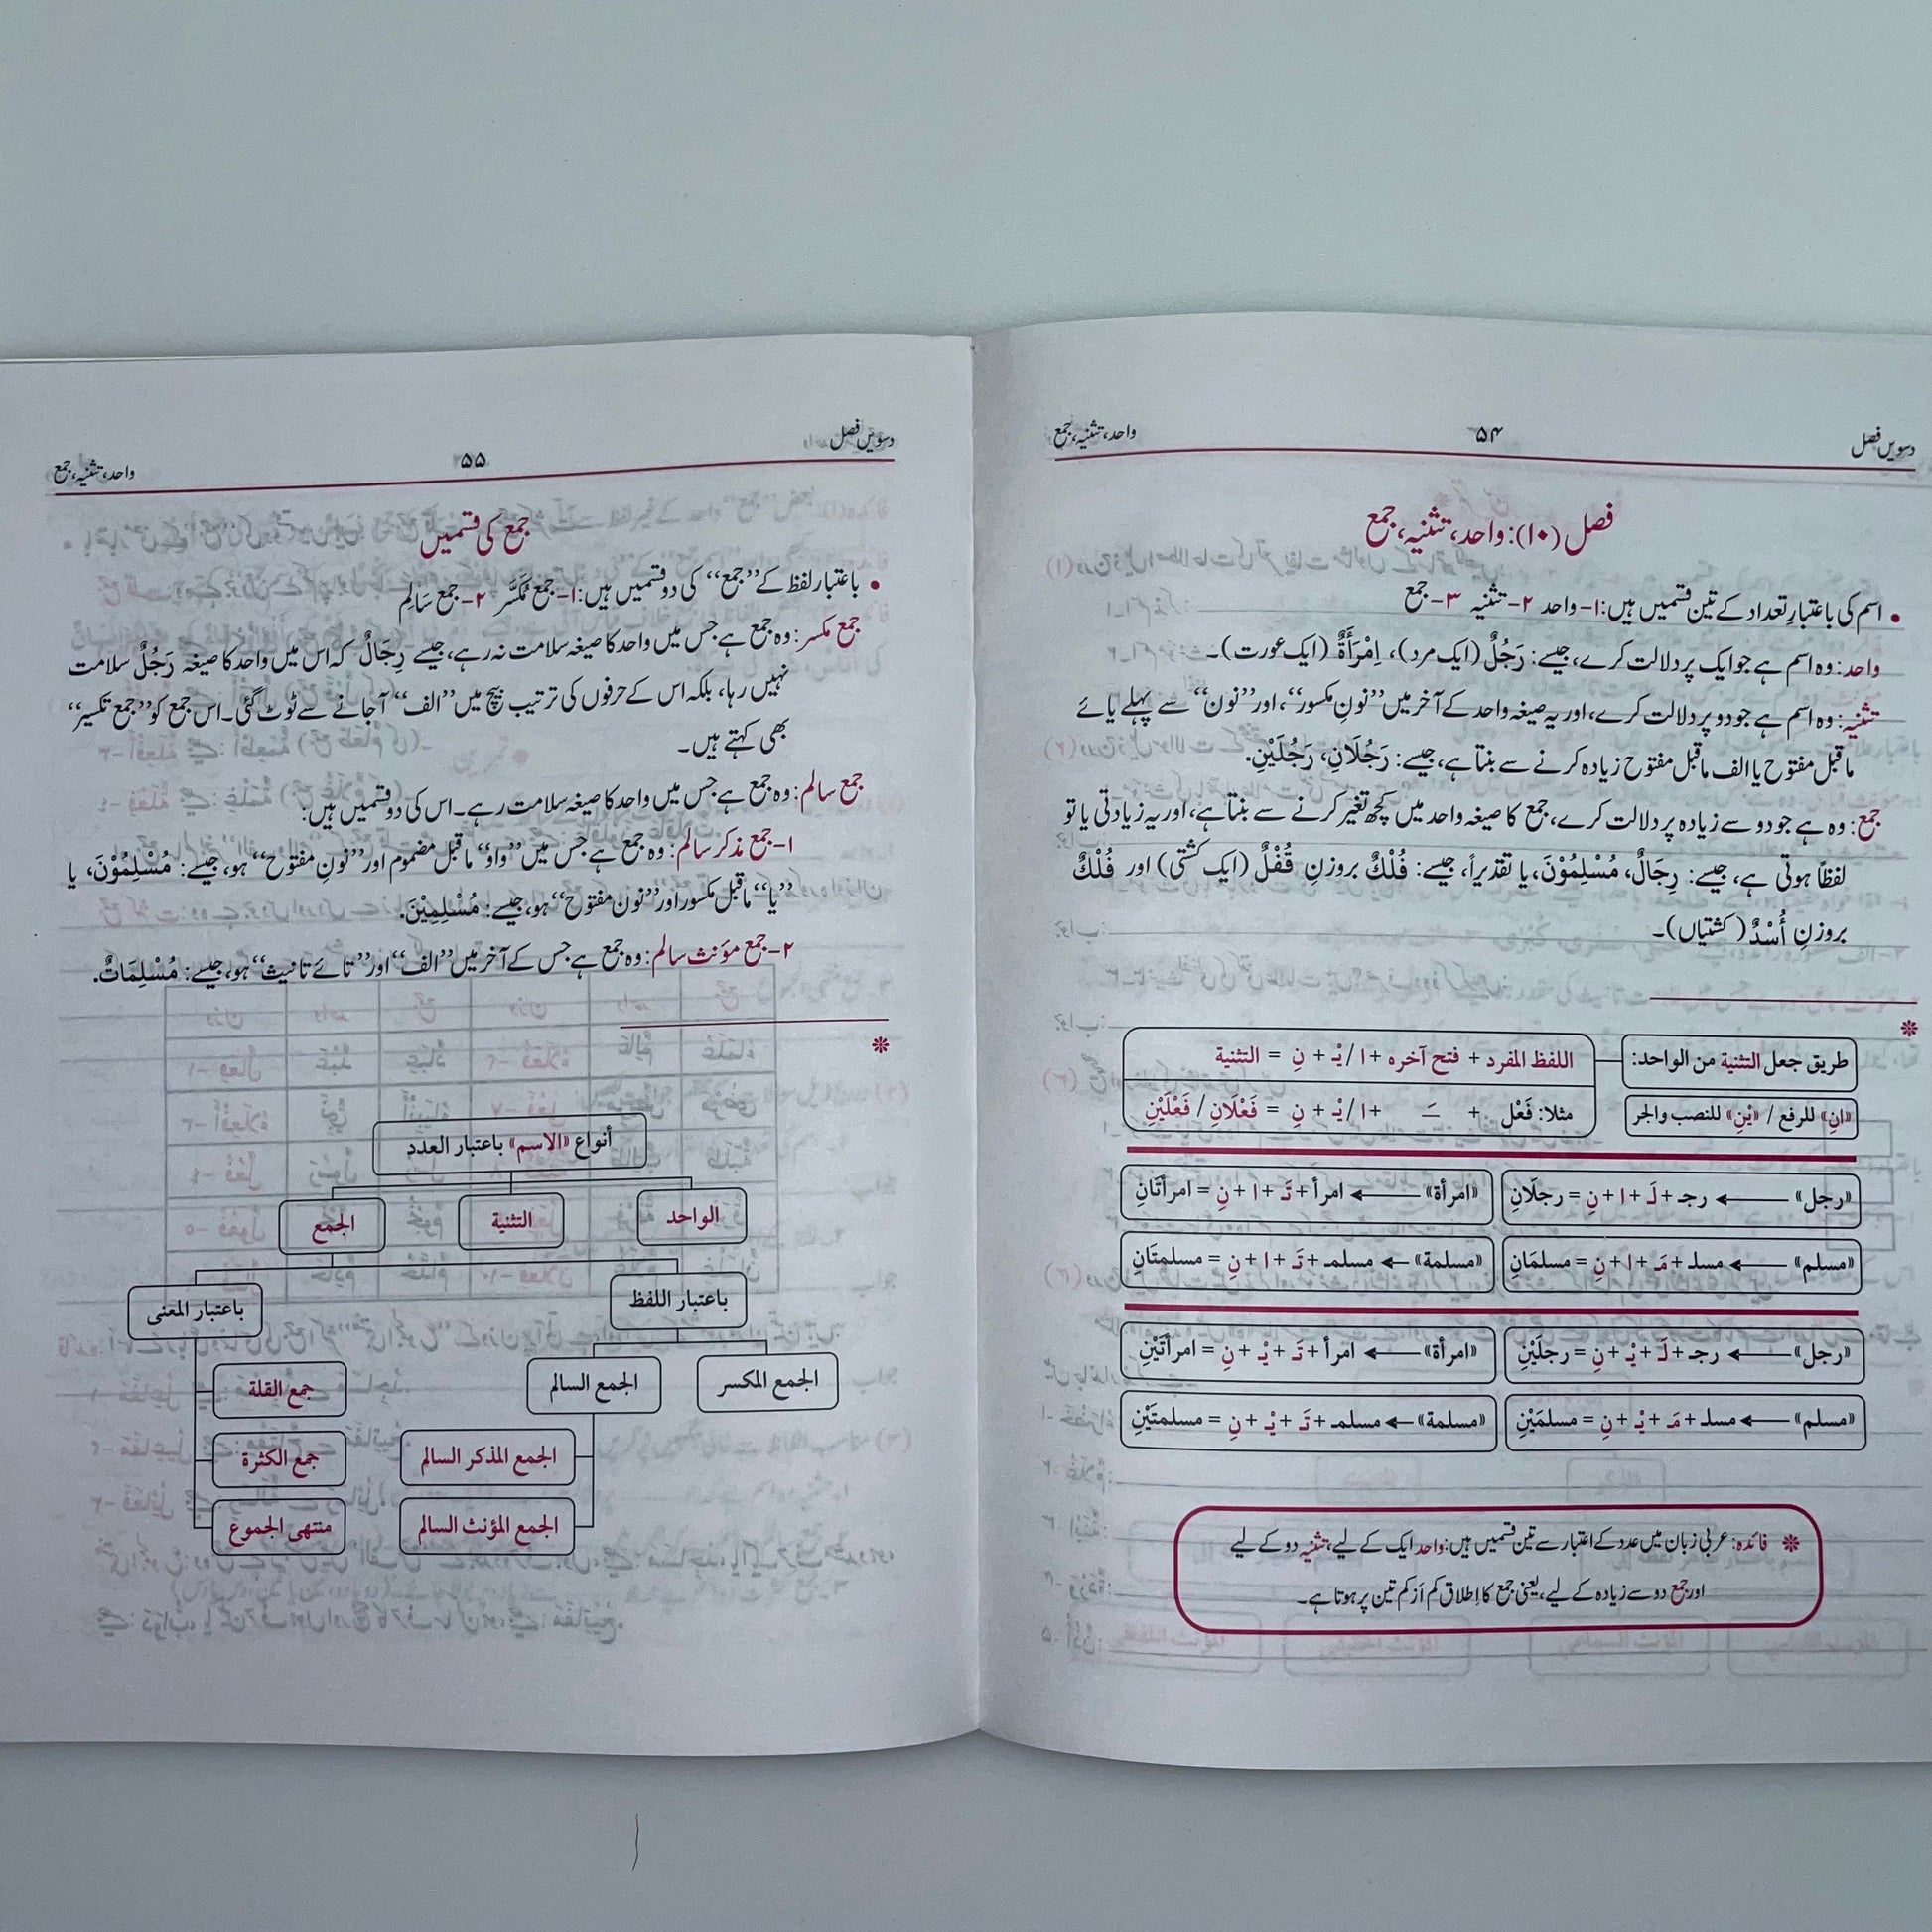 دسویں فصل
۵۴
واحد، تثنیہ، جمع
فصل (۱۰): واحد، تثنیہ، جمع
• اسم کی باعتبارِ تعداد کے تین قسمیں ہیں: ۱- واحد ۲- تثنیہ ۳- جمع
واحد: وہ اسم ہے جو ایک پر دلالت کرے، جیسے: رَجُلٌ (ایک مرد)، اِمْرَأَةٌ (ایک عورت)۔
تثنیہ: وہ اسم ہے جو دو پر دلالت کرے، اور یہ صیغہ واحد کے آخر میں ’’نونِ مکسور‘‘، اور ’’نون‘‘ سے پہلے یائے
ماقبل مفتوح یا الف ماقبل مفتوح زیادہ کرنے سے بنتا ہے، جیسے: رَجُلَانِ، رَجُلَيْنِ.
جمع: وہ ہے جو دو سے زیادہ پر دلالت کرے، جمع کا صیغہ واحد میں کچھ تغیر کرنے سے بنتا ہے، اور یہ زیادتی یا تو
لفظاً ہوتی ہے، جیسے: رِجَالٌ، مُسْلِمُوْنَ، یا تقدیراً، جیسے: فُلْكٌ بروزنِ قُفْلٌ (ایک کشتی) اور فُلْكٌ
بروزنِ أُسْدٌ (کشتیاں)۔
طريق جعل التثنية من الواحد:
اللفظ المفرد + فتح آخره + ا / يْـ + نِ = التثنية
«انِ» للرفع / «يْنِ» للنصب والجر
مثلا: فَعْل + ـَـ + ا / يْـ + نِ = فَعْلَانِ / فَعْلَيْنِ
«رجل» ← رجـ + لَـ + ا + نِ = رجلَانِ
«امرأة» ← امرأ + تَـ + ا + نِ = امرأتَانِ
«مسلم» ← مسلـ + مَـ + ا + نِ = مسلمَانِ
«مسلمة» ← مسلمـ + تَـ + ا + نِ = مسلمتَانِ
«رجل» ← رجـ + لَـ + يْـ + نِ = رجلَيْنِ
«امرأة» ← امرأ + تَـ + يْـ + نِ = امرأتَيْنِ
«مسلم» ← مسلـ + مَـ + يْـ + نِ = مسلمَيْنِ
«مسلمة» ← مسلمـ + تَـ + يْـ + نِ = مسلمتَيْنِ
فائدہ: عربی زبان میں عدد کے اعتبار سے تین قسمیں ہیں: واحد ایک کے لیے، تثنیہ دو کے لیے
اور جمع دو سے زیادہ کے لیے، یعنی جمع کا اِطلاق کم اَز کم تین پر ہوتا ہے۔
دسویں فصل
۵۵
واحد، تثنیہ، جمع
جمع کی قسمیں
• باعتبار لفظ کے ’’جمع‘‘ کی دو قسمیں ہیں: ۱- جمع مُکَسَّر ۲- جمع سَالِم
جمع مکسر: وہ جمع ہے جس میں واحد کا صیغہ سلامت نہ رہے، جیسے رِجَالٌ کہ اس میں واحد کا صیغہ رَجُلٌ سلامت
نہیں رہا، بلکہ اس کے حرفوں کی ترتیب بیچ میں ’’الف‘‘ آجانے سے ٹوٹ گئی۔ اس جمع کو ’’جمع تکسیر‘‘
بھی کہتے ہیں۔
جمع سالم: وہ جمع ہے جس میں واحد کا صیغہ سلامت رہے۔ اس کی دو قسمیں ہیں:
۱- جمع مذکر سالم: وہ جمع ہے جس میں ’’واو‘‘ ماقبل مضموم اور ’’نونِ مفتوح‘‘ ہو، جیسے: مُسْلِمُوْنَ، یا
’’یا‘‘ ماقبل مکسور اور ’’نون مفتوح‘‘ ہو، جیسے: مُسْلِمِيْنَ.
۲- جمع مؤنث سالم: وہ جمع ہے جس کے آخر میں ’’الف‘‘ اور ’’تائے تانیث‘‘ ہو، جیسے: مُسْلِمَاتٌ.
أنواع «الاسم» باعتبار العدد
الواحد
التثنية
الجمع
باعتبار اللفظ
باعتبار المعنى
الجمع المكسر
الجمع السالم
جمع القلة
الجمع المذكر السالم
جمع الكثرة
الجمع المؤنث السالم
منتهى الجموع